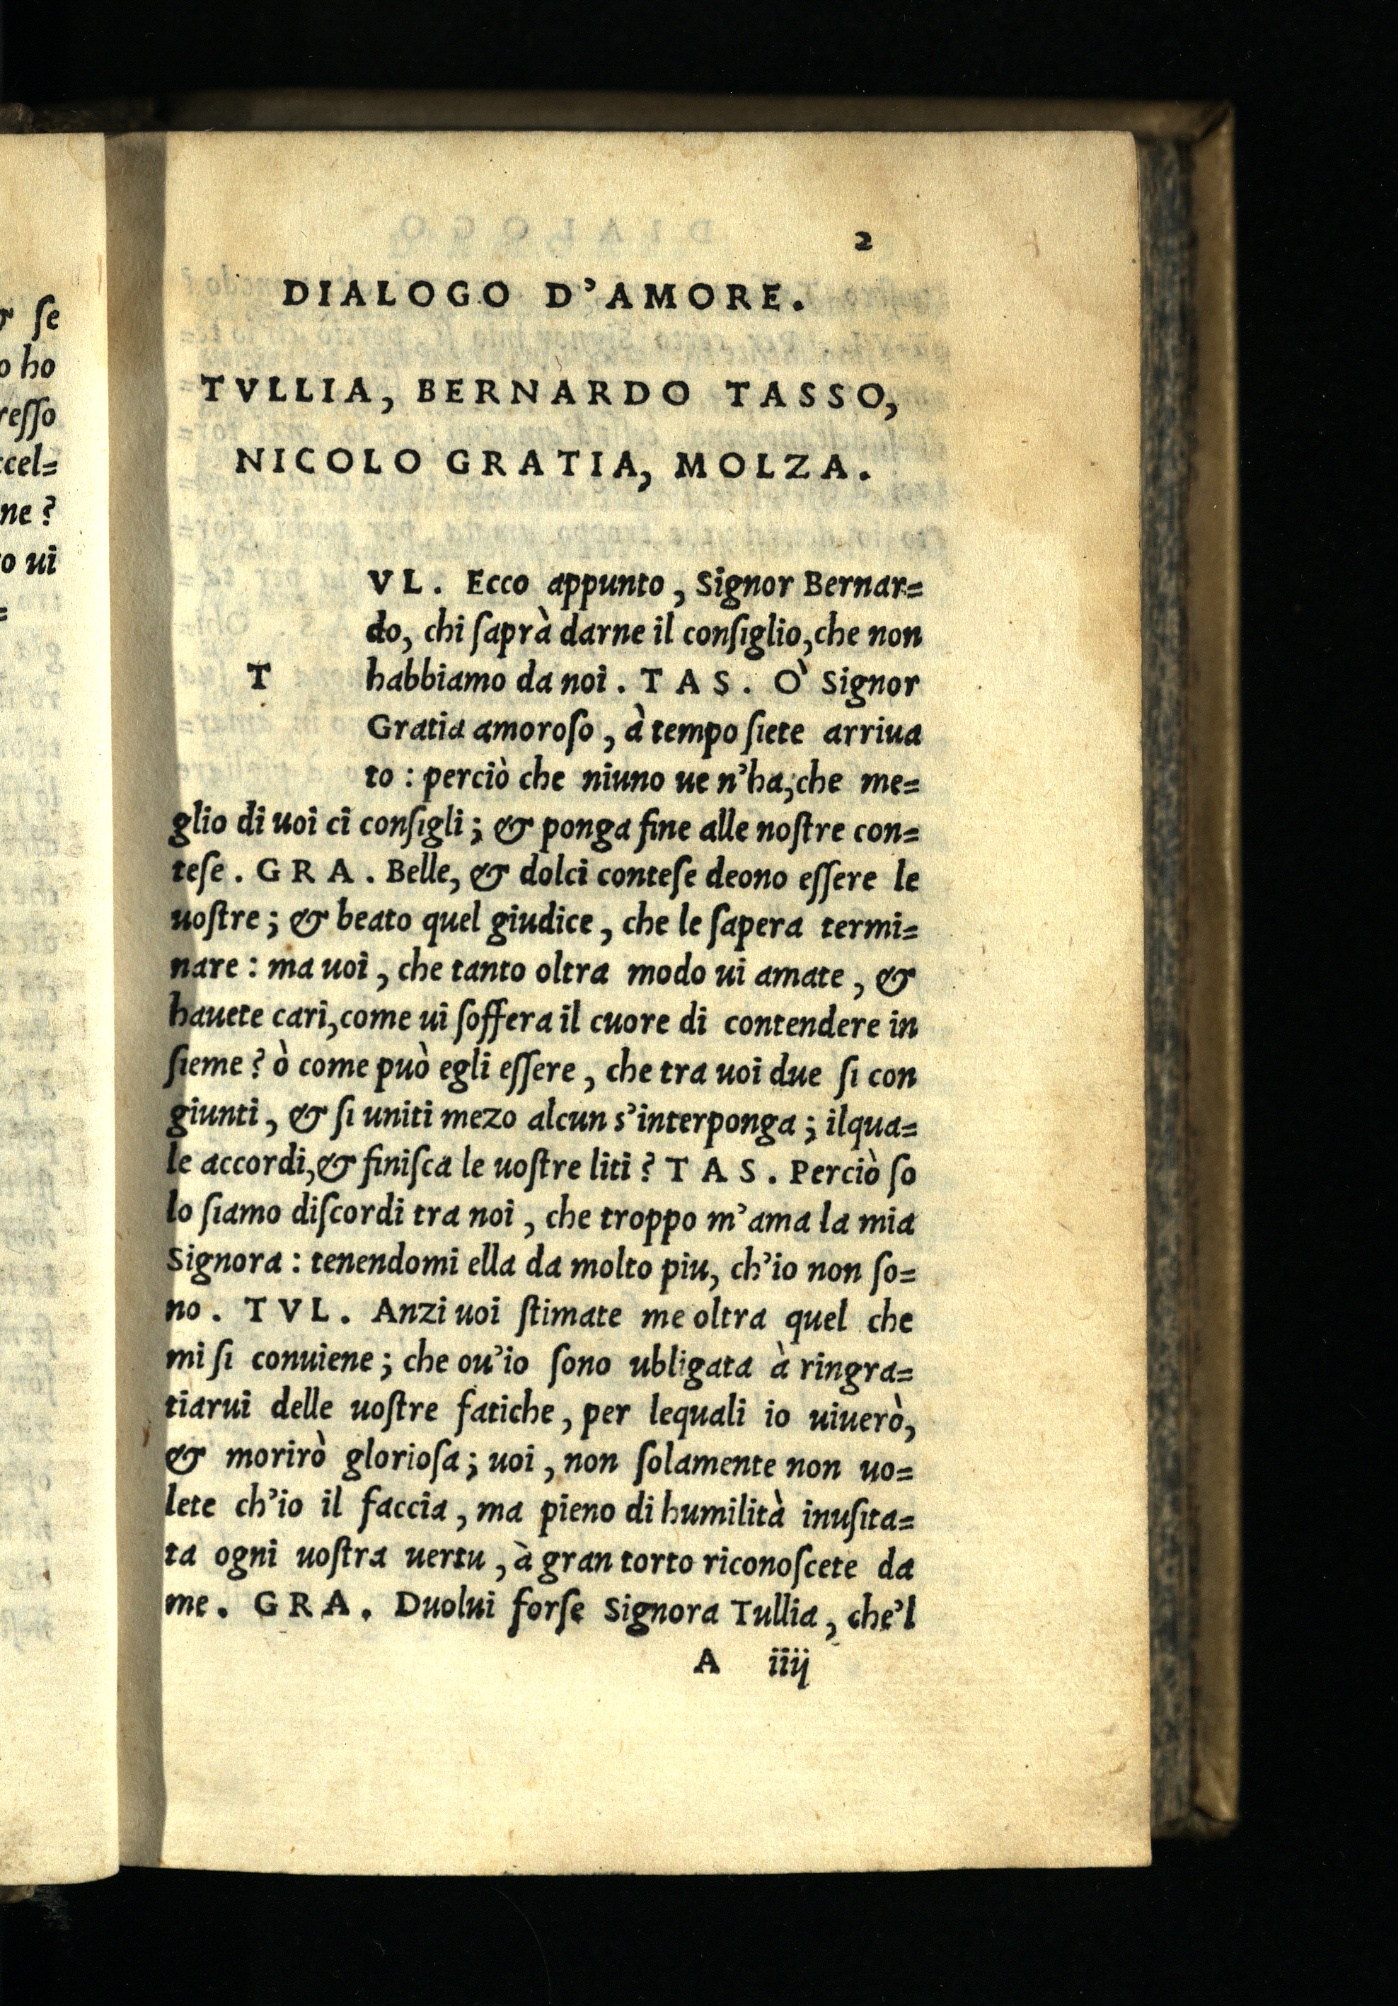 & se
o ho
resso
ccel=
ne ?
o ui
=
2
DIALOGO D'AMORE.
TVLLIA, BERNARDO TASSO,
NICOLO GRATIA, MOLZA.
T
VL. Ecco appunto, Signor Bernar=
do, chi ſaprà darne il conſiglio, che non
habbiamo da noi. TAS. Ò Signor
Gratia amoroſo, à tempo ſiete arriua
to : perciò che niuno ue n'ha, che me=
glio di uoi ci conſigli; & ponga fine alle noſtre con=
teſe. GRA. Belle, & dolci conteſe deono eſſere le
uoſtre; & beato quel giudice, che le ſapera termi=
nare : ma uoi, che tanto oltra modo ui amate, &
hauete cari, come ui ſoffera il cuore di contendere in
ſieme? ò come può egli eſſere, che tra uoi due ſi con
giunti, & ſi uniti mezo alcun s'interponga; ilqua=
le accordi, & finiſca le uoſtre liti? TAS. Perciò ſo
lo ſiamo diſcordi tra noi, che troppo m'ama la mia
Signora : tenendomi ella da molto piu, ch'io non ſo=
no. TVL. Anzi uoi ſtimate me oltra quel che
mi ſi conuiene; che ou'io ſono ubligata à ringra=
tiarui delle uoſtre fatiche, per lequali io uiuerò,
& morirò glorioſa; uoi, non ſolamente non uo=
lete ch'io il faccia, ma pieno di humilità inuſita=
ta ogni uoſtra uertu, à gran torto riconoſcete da
me. GRA. Duolui forſe Signora Tullia, che'l
A iiij